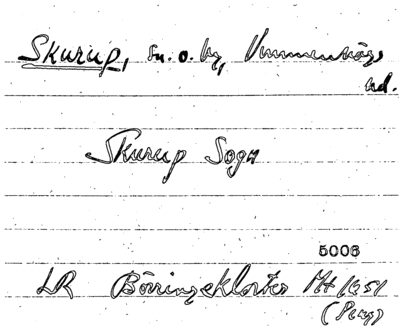 Skurup, sn. o. by, Vemmenhögs
hd.
Skurup Sogn
5006
LR Börringekloster Mt 1651
(Perg)